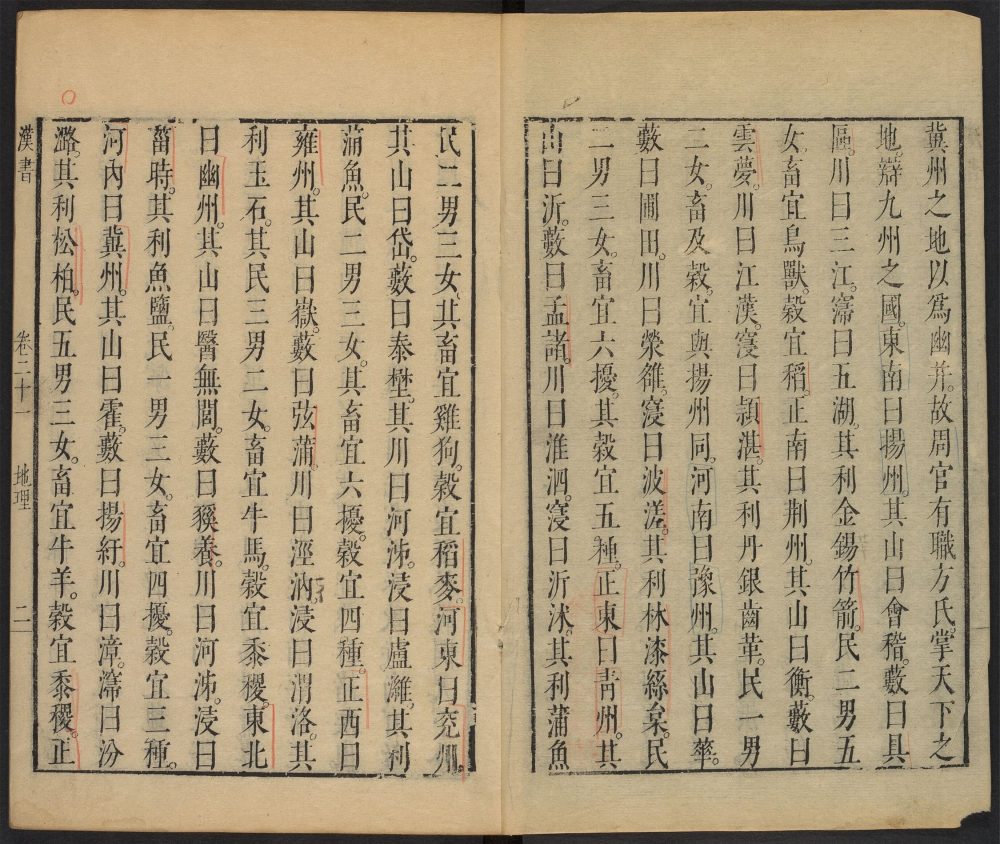 冀州之地以爲幽并故周官有職方氏掌天下之
地辯九州之國東南曰揚州其山曰會稽藪曰具
區川曰三江寖曰五湖其利金錫竹箭民二男五
女畜宜鳥獸穀宜稻正南曰荆州其山曰衡藪曰
雲夢川曰江漢寖曰潁湛其利丹銀齒革民一男
二女畜及穀宜與揚州同河南曰豫州其山曰華
藪曰圃田川曰滎雒寖曰波溠其利林漆絲枲民
二男三女畜宜六擾其穀宜五種正東曰青州其
山曰沂藪曰孟諸川曰淮泗寖曰沂沭其利蒲魚
民二男三女其畜宜雞狗穀宜稻麥河東曰兖州
其山曰岱藪曰泰壄其川曰河泲浸曰盧濰其利
蒲魚民二男三女其畜宜六擾穀宜四種正西曰
雍州其山曰嶽藪曰弦蒲川曰涇汭浸曰渭洛其
利玉石其民三男二女畜宜牛馬穀宜黍稷東北
曰幽州其山曰醫無閭藪曰豯養川曰河泲浸曰
菑時其利魚鹽民一男三女畜宜四擾穀宜三種
河內曰冀州其山曰霍藪曰揚紆川曰漳寖曰汾
潞其利松柏民五男三女畜宜牛羊穀宜黍稷正
漢書 卷二十一 地理 二